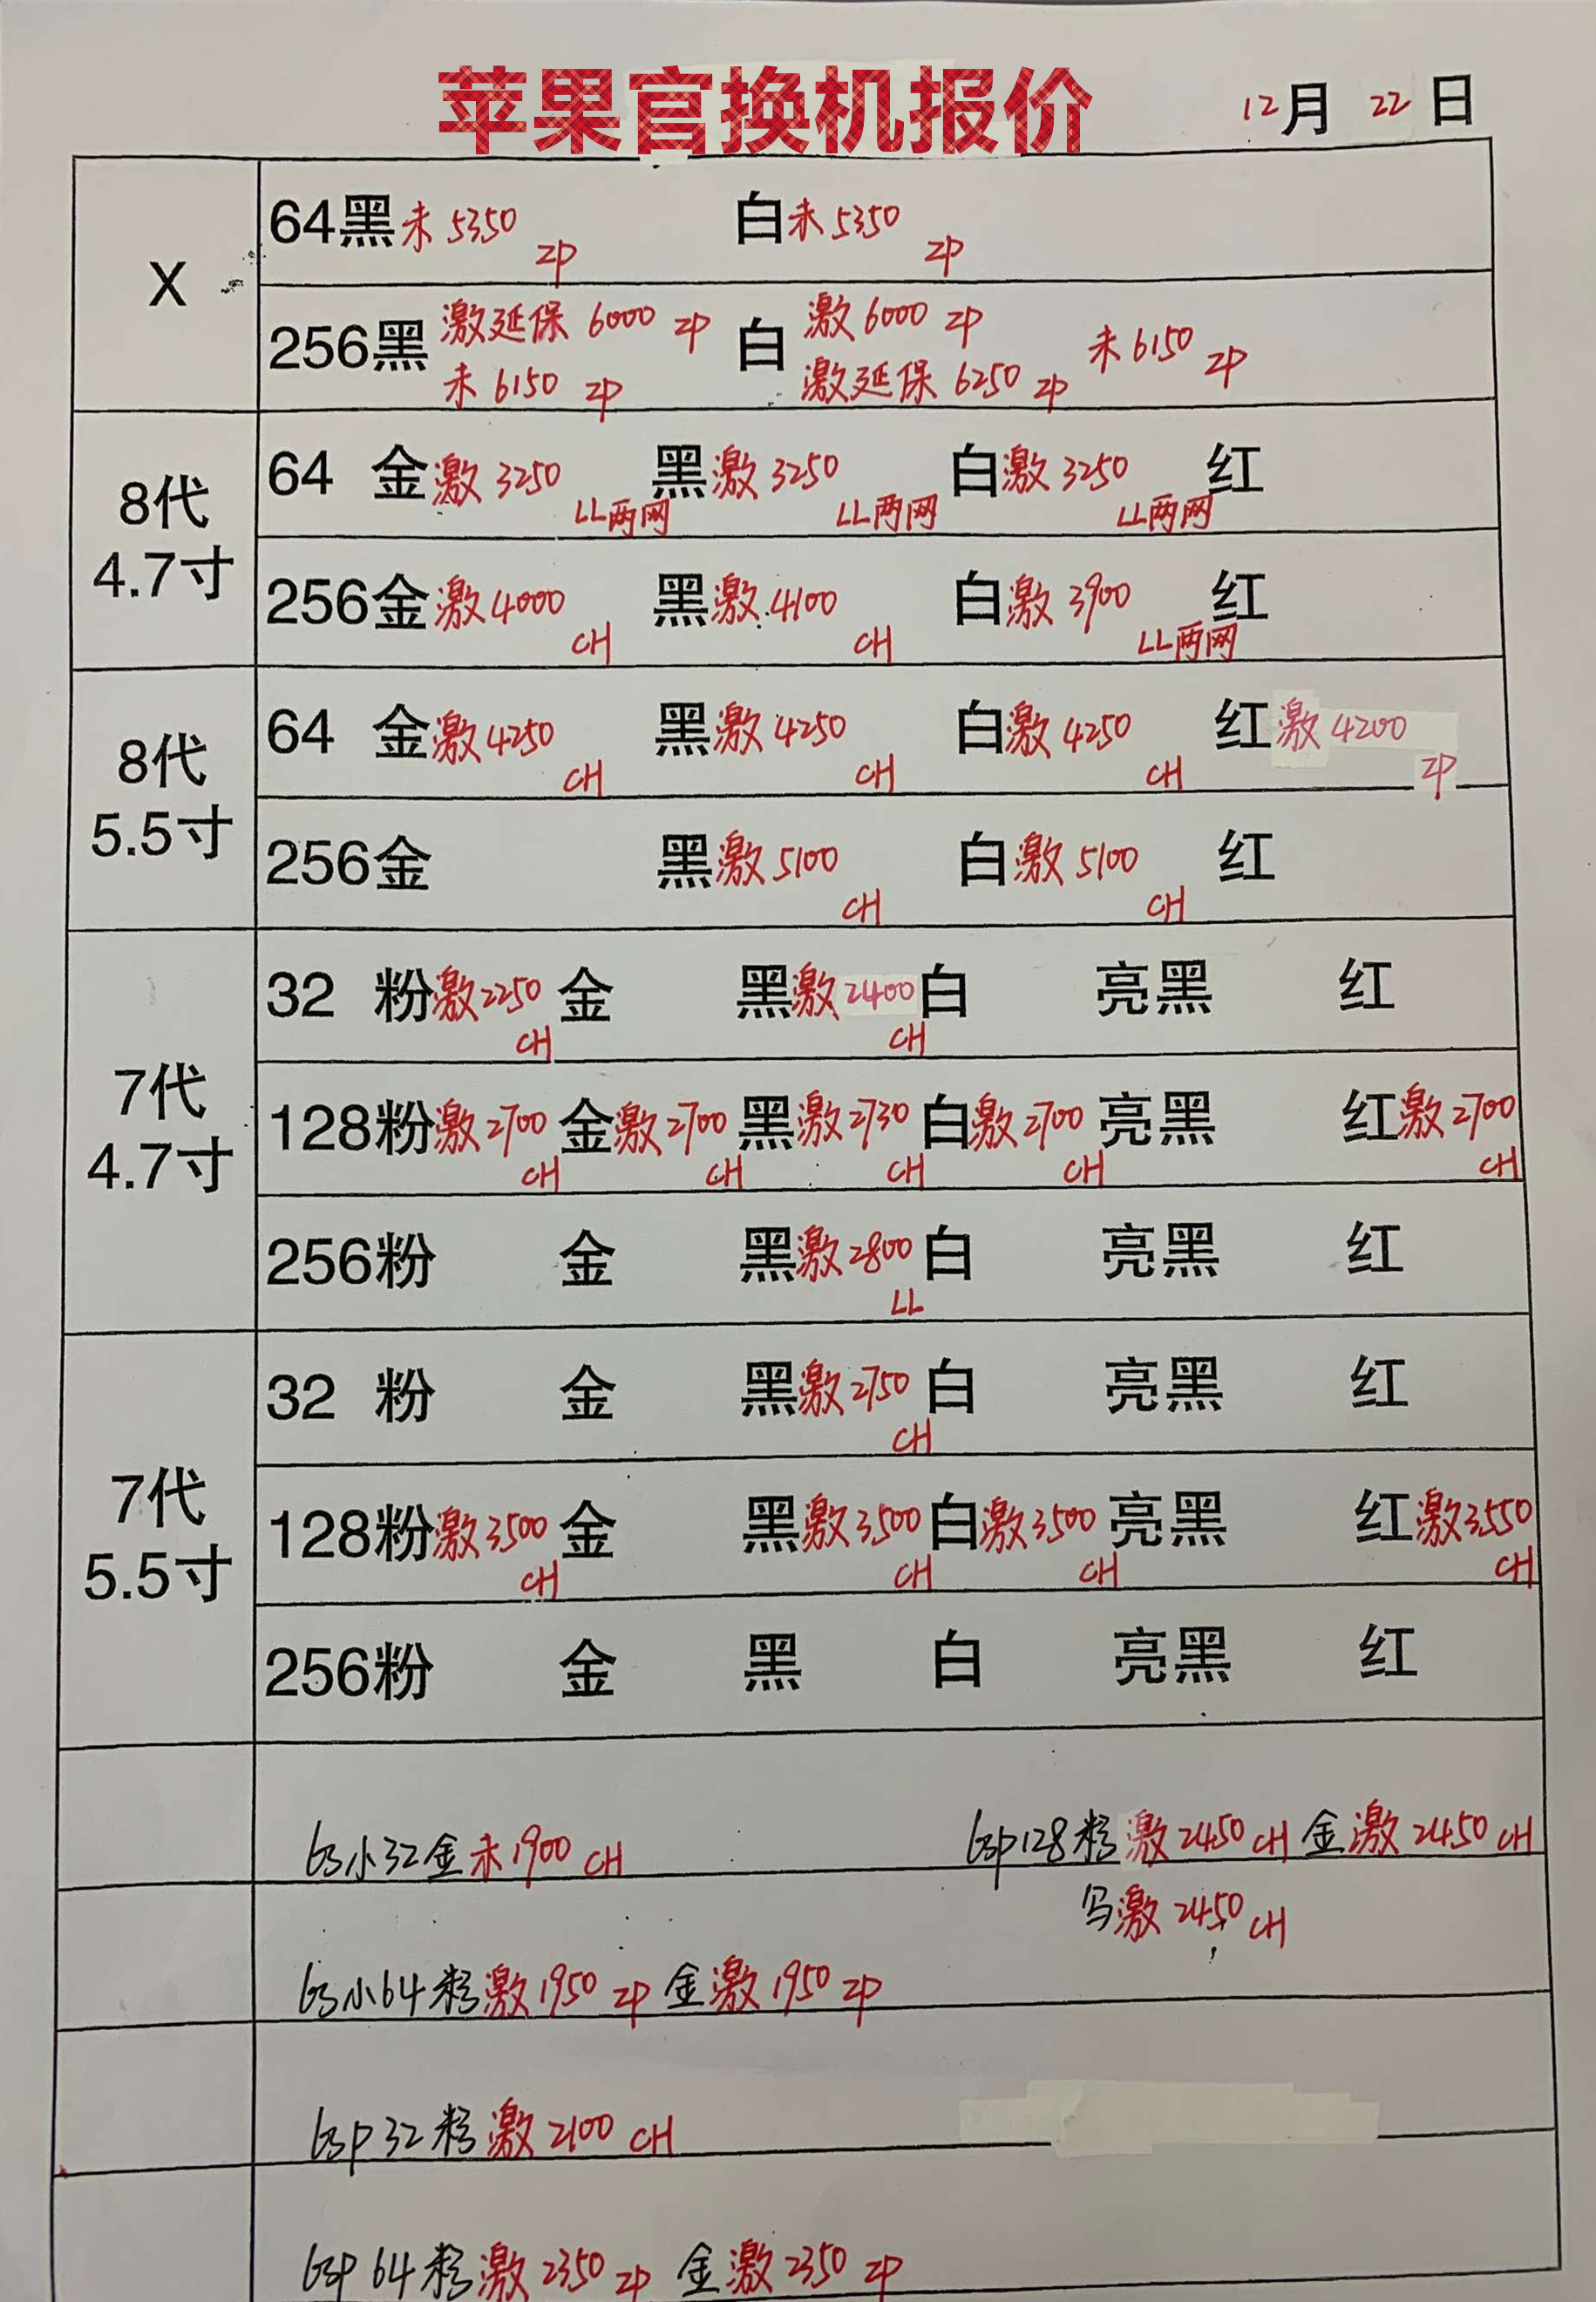 苹果官换机报价 12月 22日
X
64黑未5350 ZP 白未5350 ZP
256黑 激延保 6000 ZP 白 激6000 ZP 未6150 ZP
未6150 ZP 激延保 6250 ZP
8代
4.7寸
64 金激3250 LL两网 黑激3250 LL两网 白激3250 LL两网 红
256金激4000 CH 黑激4100 CH 白激3900 LL两网 红
8代
5.5寸
64 金激4250 CH 黑激4250 CH 白激4250 CH 红激4200 ZP
256金 黑激5100 CH 白激5100 CH 红
7代
4.7寸
32 粉激2250 CH 金 黑激2400 CH 白 亮黑 红
128粉激2700 CH 金激2700 CH 黑激2730 CH 白激2700 CH 亮黑 红激2700 CH
256粉 金 黑激2800 LL 白 亮黑 红
7代
5.5寸
32 粉 金 黑激2750 CH 白 亮黑 红
128粉激3500 CH 金 黑激3500 CH 白激3500 CH 亮黑 红激3550 CH
256粉 金 黑 白 亮黑 红
6s小32金未1900 CH 6sp128粉激2450 CH 金激2450 CH
激2450 CH
6s小64粉激1950 ZP 金激1950 ZP
6sp32粉激2100 CH
6sp 64粉激2350 ZP 金激2350 ZP